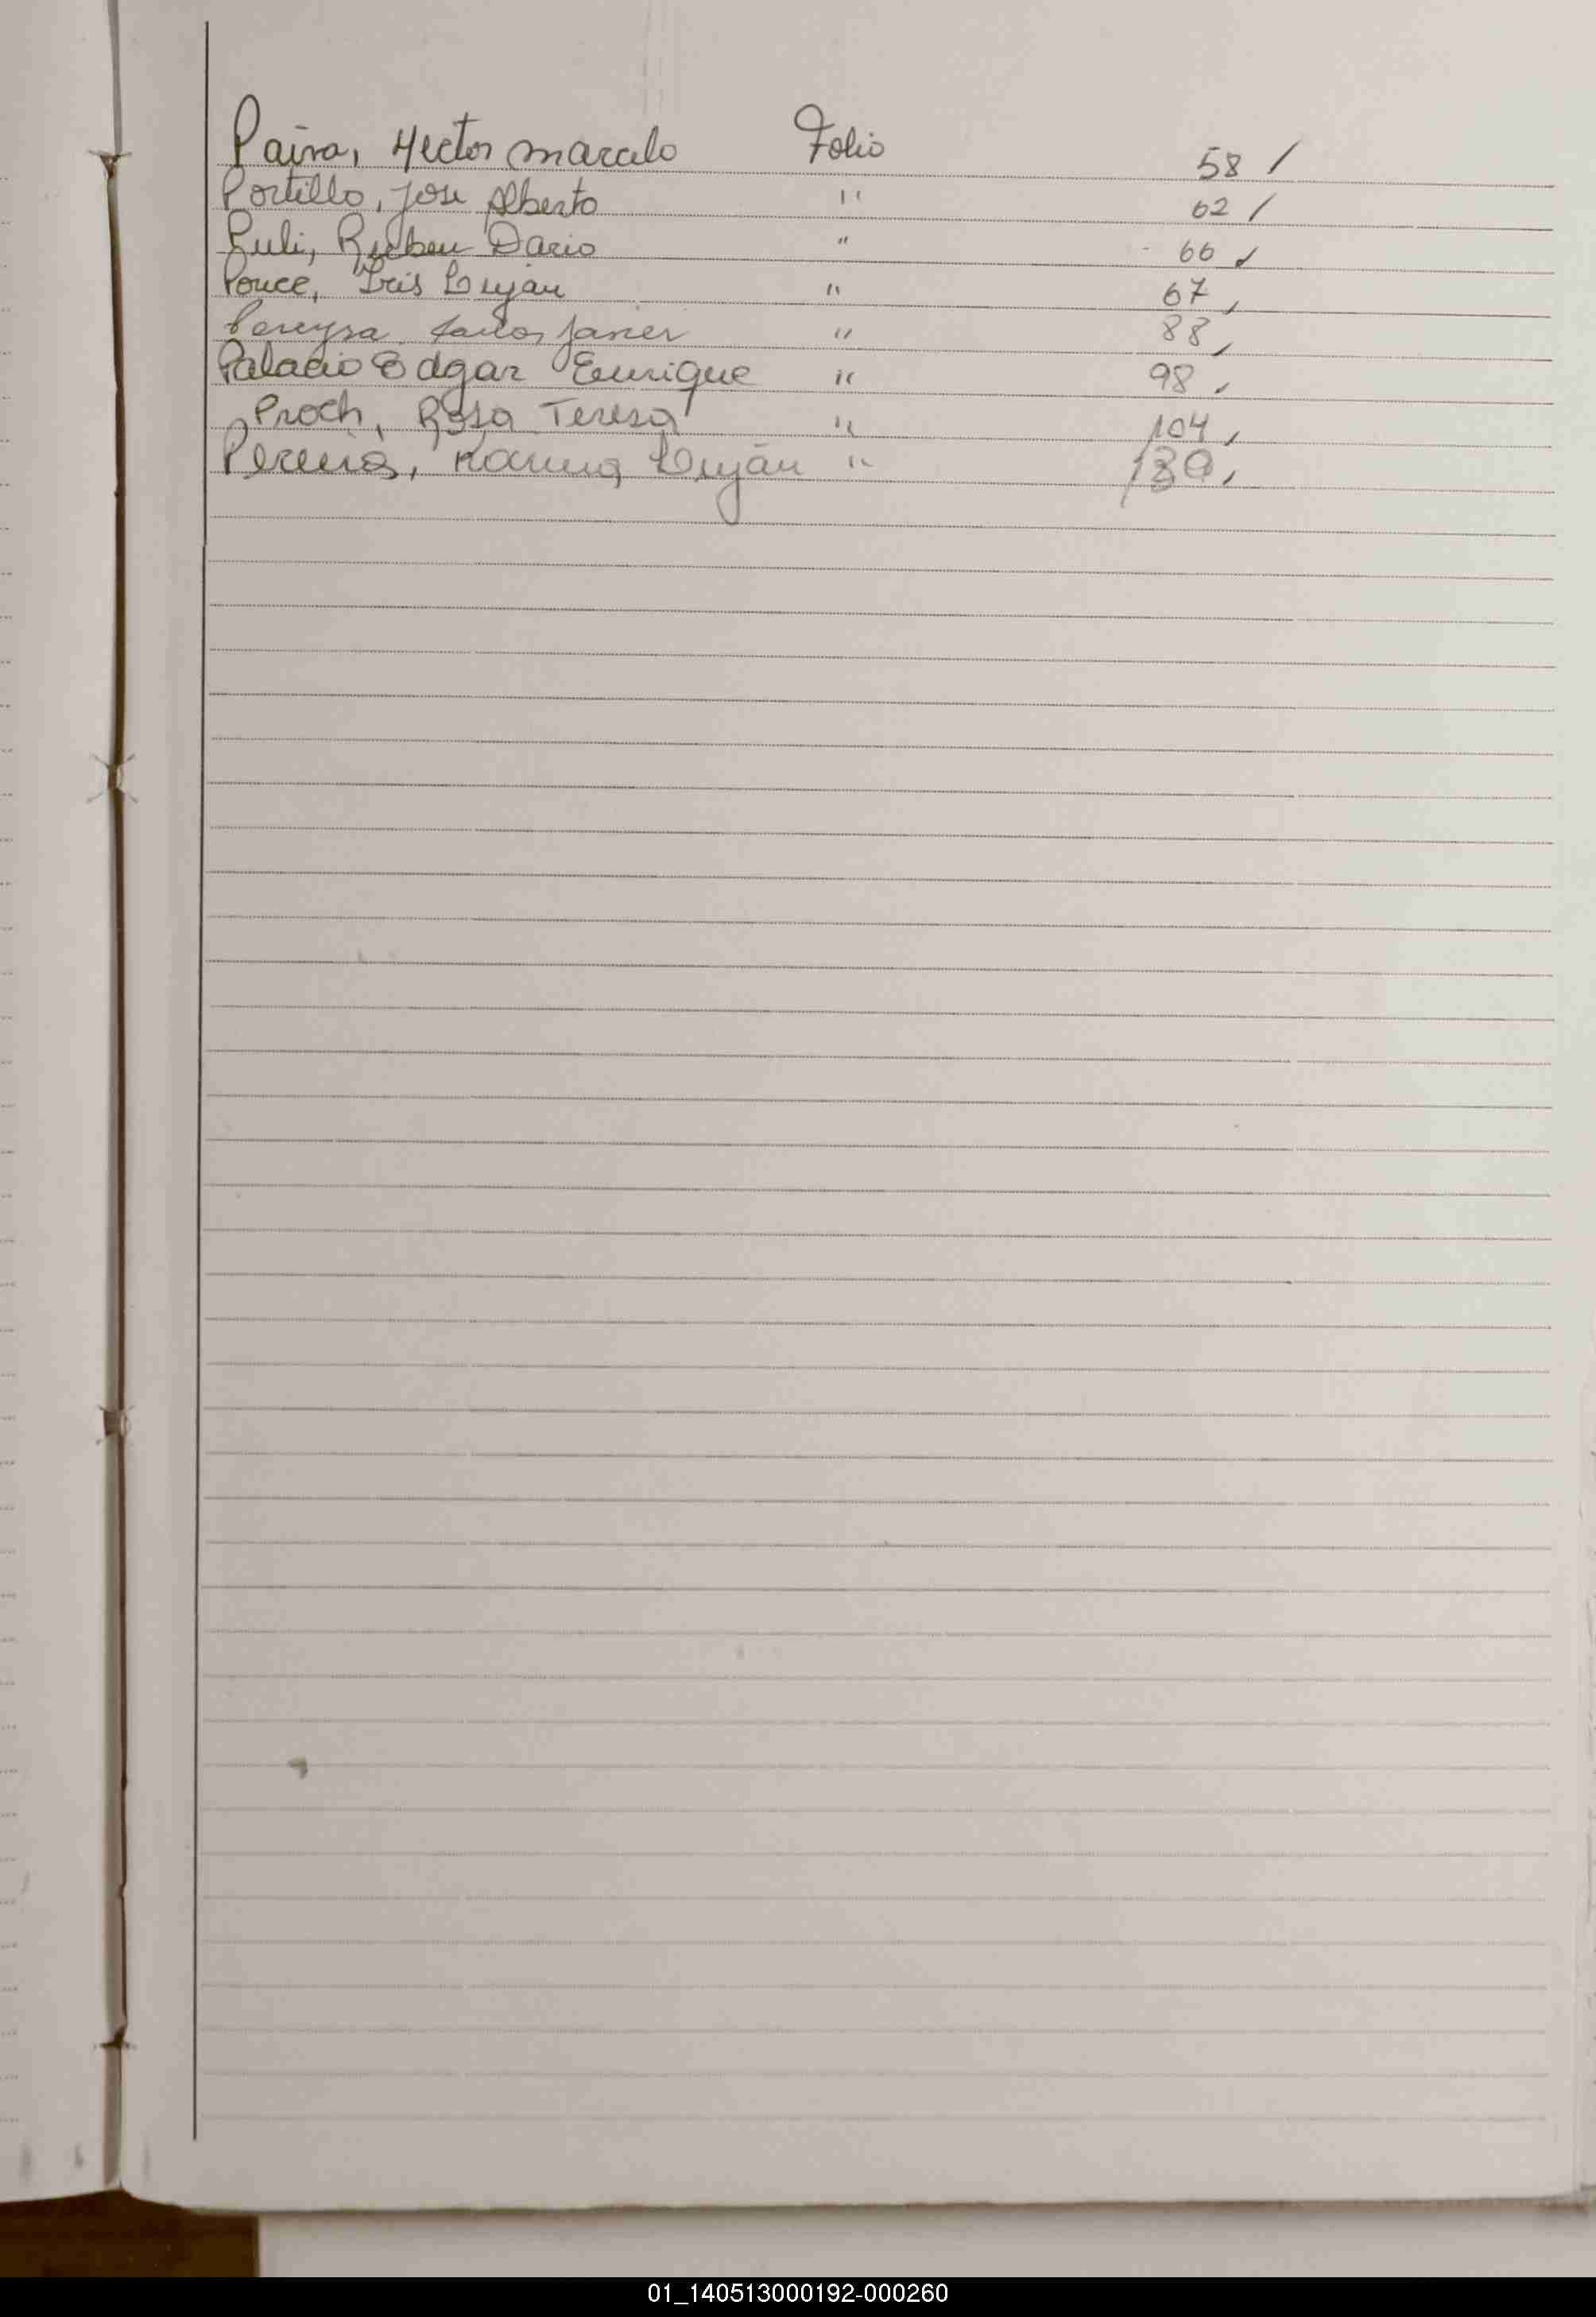 Paiva, Hector marcelo Folio 58 /
Portillo, Jose Alberto " 62 /
Puli, Ruben Dario " 66 /
Ponce, Iris Luján " 67 ,
Pereyra Carlos Javier " 88 ,
Palacio Edgar Enrique " 98 ,
Proch, Rosa Teresa " 104 ,
Pereira, Karina Luján "
01_140513000192-000260